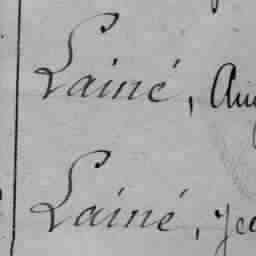 Lainé, Au
Lainé, Jea